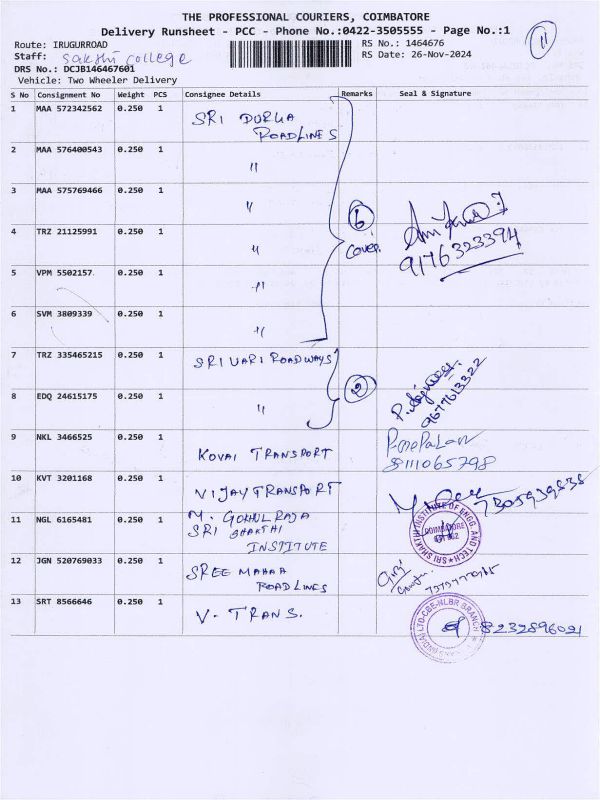 THE PROFESSIONAL COURIERS, COIMBATORE
Delivery Runsheet - PCC - Phone No.:0422-3505555 - Page No.:1
11
Route: IRUGURROAD
RS No.: 1464676
Staff: sakthi college
RS Date: 26-Nov-2024
DRS No.: DCJB146467601
Vehicle: Two Wheeler Delivery
S No Consignment No Weight PCS Consignee Details Remarks Seal & Signature
1 MAA 572342562 0.250 1 SRI DURGA
ROADLINES
2 MAA 576400543 0.250 1 "
3 MAA 575769466 0.250 1 "
6
Cover.
4 TRZ 21125991 0.250 1 "
9176323394
5 VPM 5502157 0.250 1 "
6 SVM 3809339 0.250 1 "
7 TRZ 335465215 0.250 1 SRI VARI ROADWAYS
2
8 EDQ 24615175 0.250 1 "
9677613322
9 NKL 3466525 0.250 1 KOVAI TRANSPORT
8111065798
10 KVT 3201168 0.250 1 VIJAY TRANSPORT
7305939838
11 NGL 6165481 0.250 1 M. GOKUL RAJA
SRI SHAKTHI
INSTITUTE
SRI SHAKTHI INSTITUTE OF ENGG. AND TECH
COIMBATORE
641 062
12 JGN 520769033 0.250 1 SREE MAHAA
ROADLINES
13 SRT 8566646 0.250 1 V- TRANS.
V-TRANS (INDIA) LTD-CBE-NLBR BRANCH
8232896021